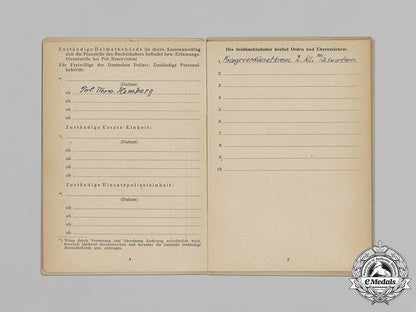 Zuständige Heimatbehörde (in deren Kassenanschlag
sich die Planstelle des Buchinhabers befindet bzw. Erfassungs-
Dienststelle bei Pol.-Reservisten)
Für Freiwillige der Deutschen Polizei: Zuständige Personal-
behörde:
*)
(Datum)
ab Pol. Verw. Hamburg
ab
ab
ab
Zuständige Ersatz-Einheit:
ab
ab
ab
ab
Zuständige Einsatzpolizeieinheit:
*)
(Datum)
ab
ab
ab
*) Wenn durch Versetzung und Abordnung Änderung erforderlich wird,
4
Der Soldbuchinhaber besitzt Orden und Ehrenzeichen:
Kriegsverdienstkreuz 2. Kl. m/Schwertern
2.
3.
4.
5.
6.
7.
8.
9.
10.
5
eMedals